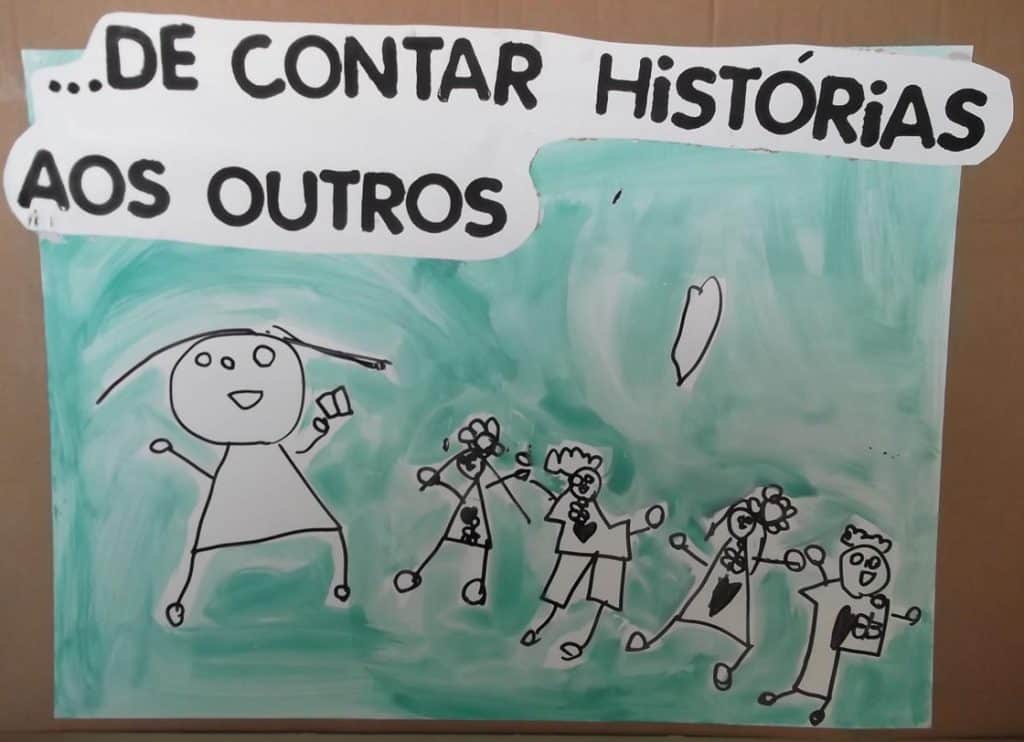 ...DE CONTAR HiSTÓRiAS
AOS OUTROS